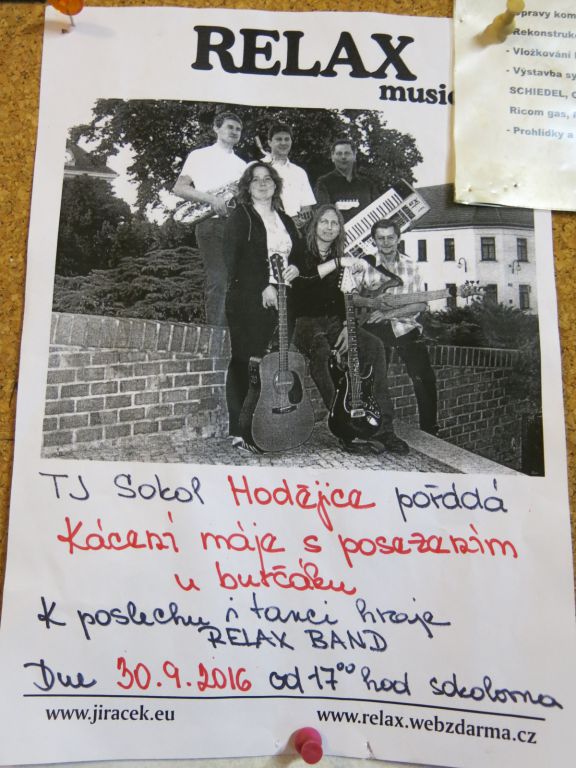 RELAX
music
TJ Sokol Hodějice pořddá
Kácení máje s posezením
u burčáku
K poslechu i tanci hraje
RELAX BAND
Dne 30.9.2016 od 17⁰⁰ hod sokolovna
www.jiracek.eu
www.relax.webzdarma.cz
- Rekonstrukc
- Vložkování
- Výstavba sy
SCHIEDEL, C
Ricom gas,
- Prohlídky a